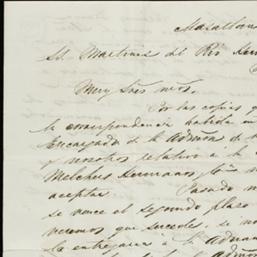 Mazatlan
Sr. Martinez del Rio Herm
Muy Sres. mos.
Por las copias q
la correspondencia habida en
Encargado de la Admon de
y nosotros relativo a la
Melchers Hermanos
aceptar. Pasado
se vence el segundo plazo
veremos que sucede, si no
la entregara a la Aduana